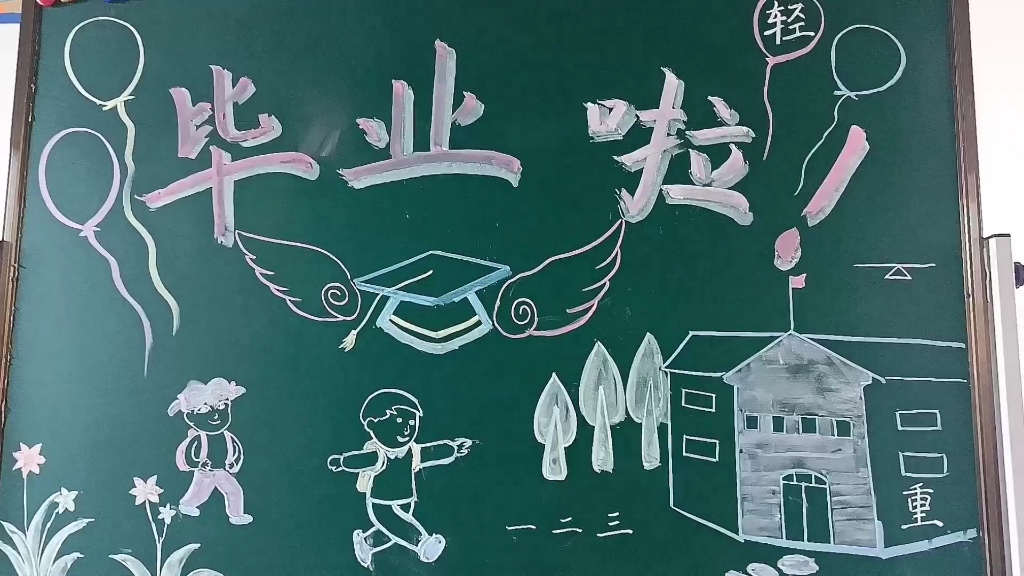 轻
毕业啦!
一 二 三
重